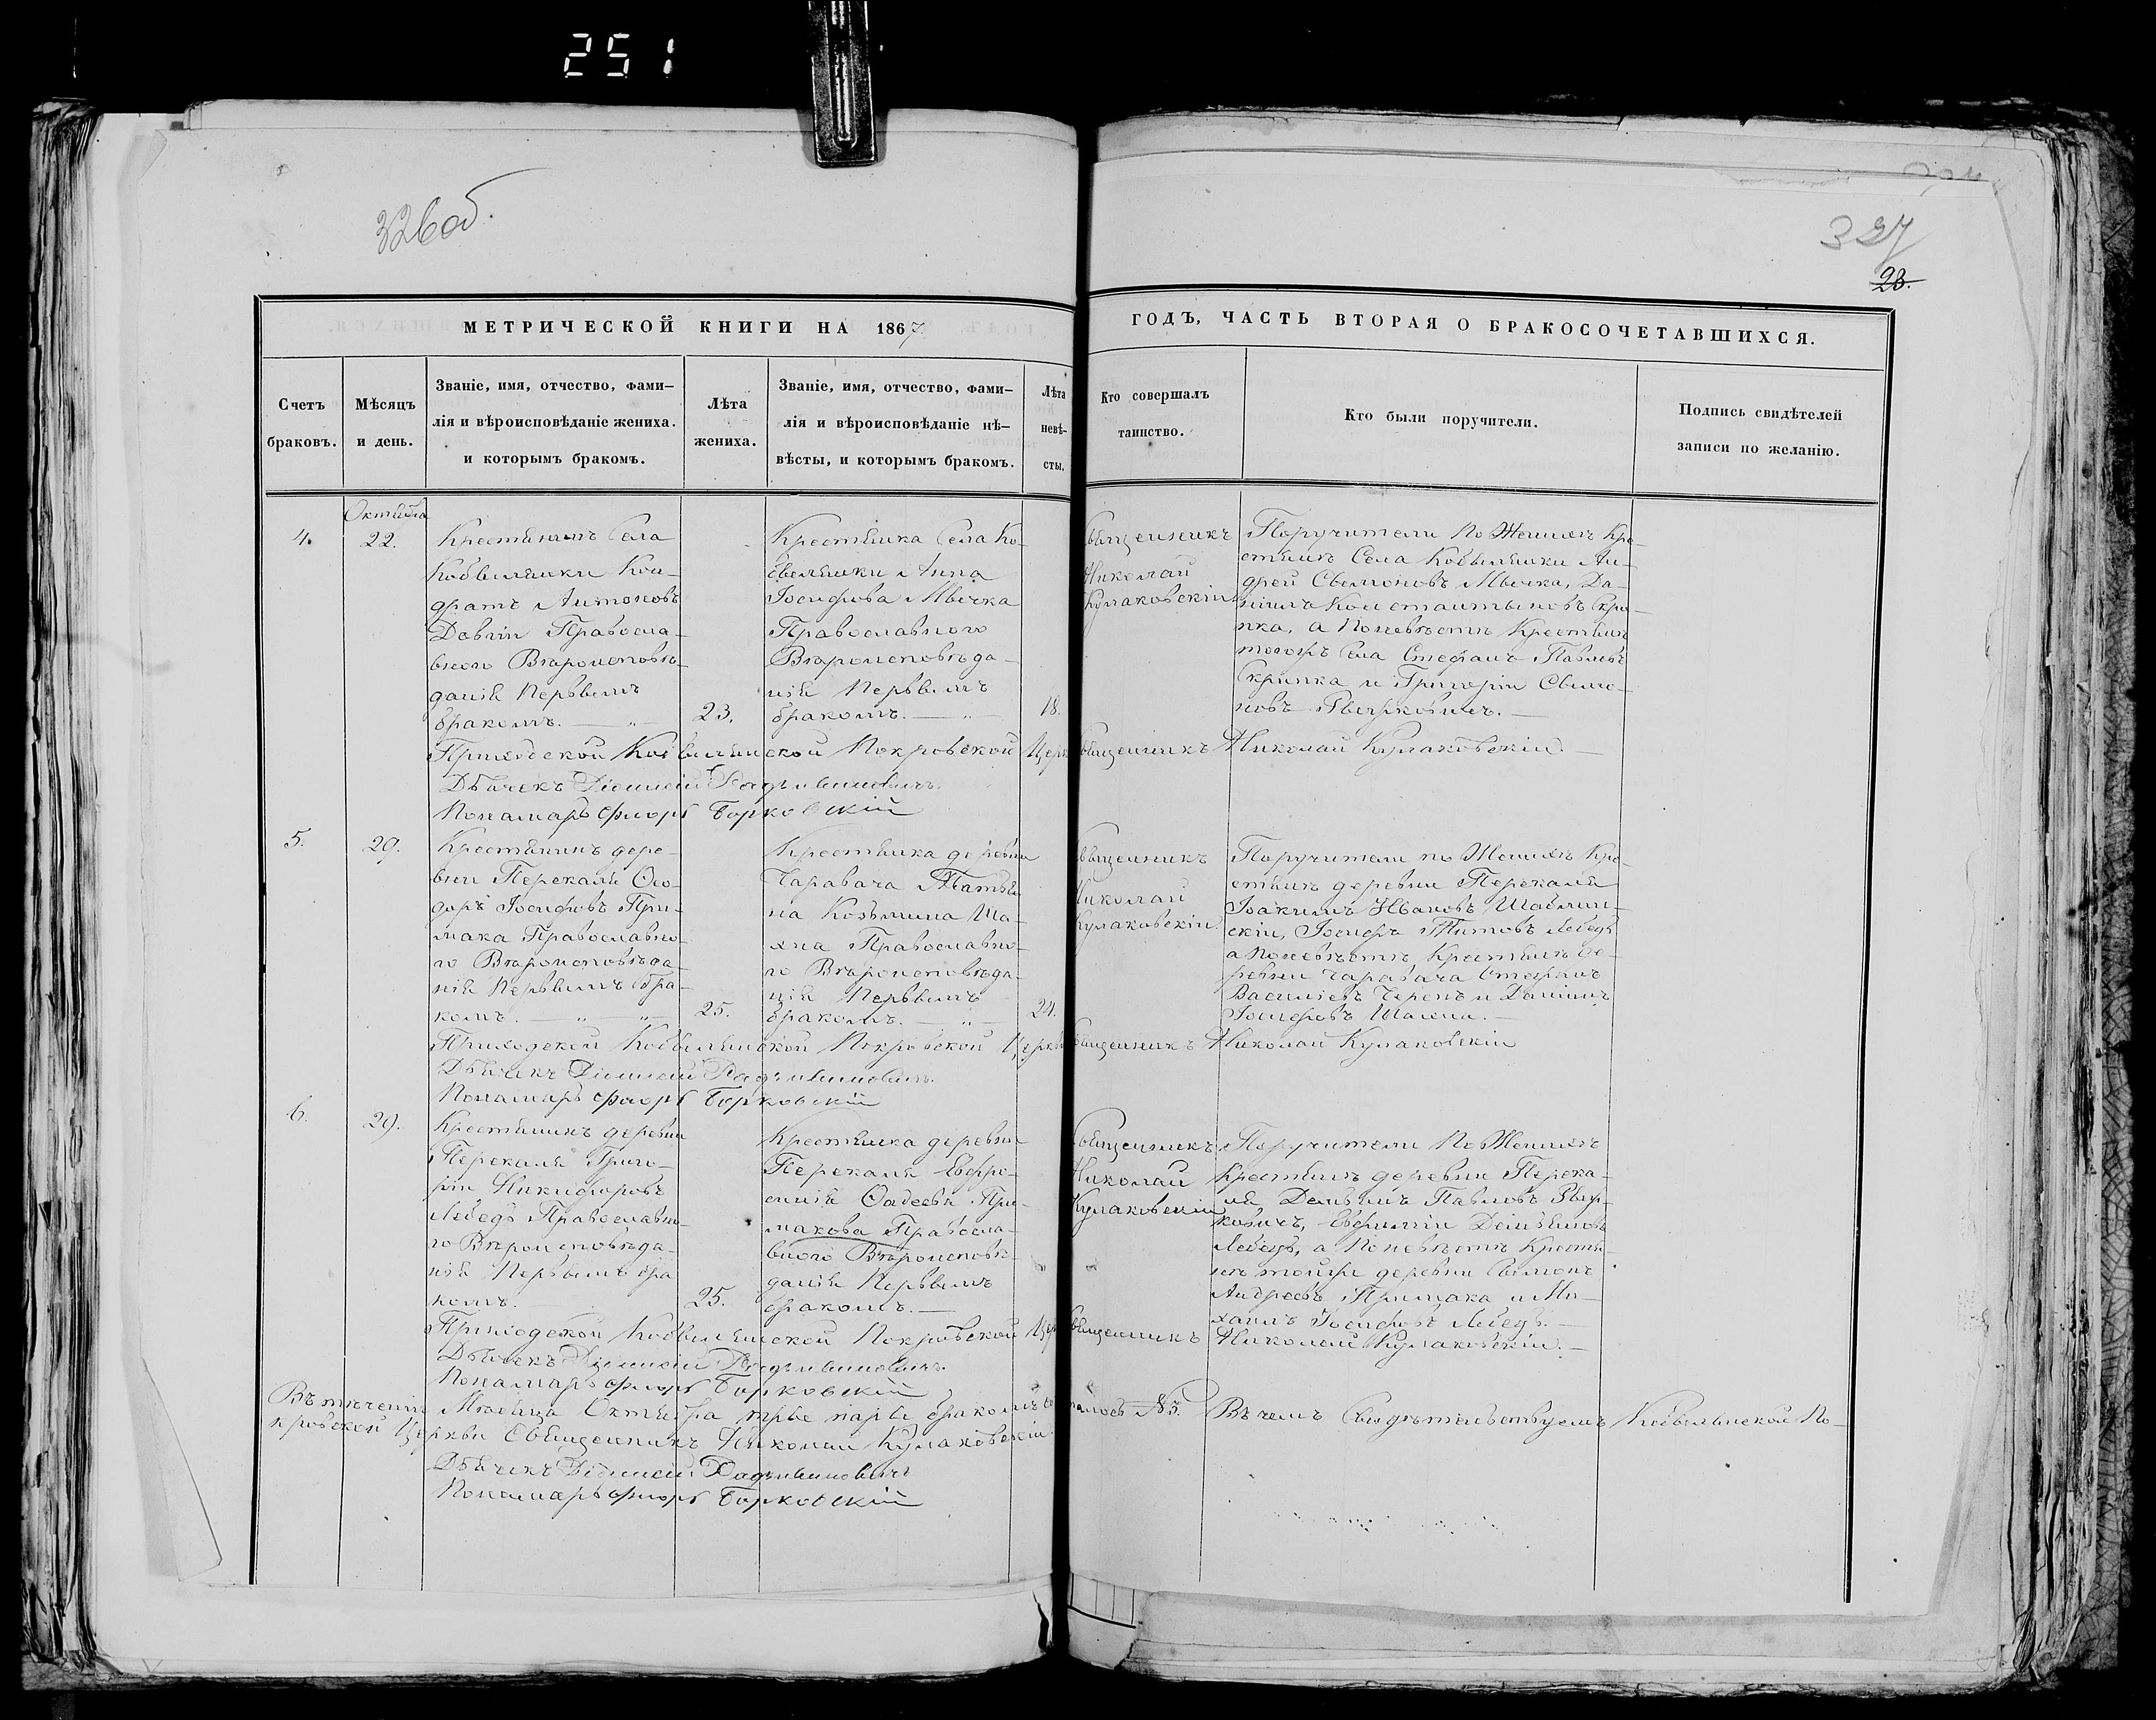 251
326 об.
327
23.
МЕТРИЧЕСКОЙ КНИГИ НА 1867
ГОДЪ, ЧАСТЬ ВТОРАЯ О БРАКОСОЧЕТАВШИХСЯ.
Счетъ
браковъ.
Мѣсяцъ
и день.
Званіе, имя, отчество, фами-
лія и вѣроисповѣданіе жениха.
и которымъ бракомъ.
Лѣта
жениха.
Званіе, имя, отчество, фами-
лія и вѣроисповѣданіе нѣ-
вѣсты, и которымъ бракомъ.
Лѣта
невѣ-
сты.
Кто совершалъ
таинство.
Кто были поручители.
Подпись свидѣтелей
записи по желанію.
4.
Октября
22.
Крестьянинъ Села
Кобылянки Кон-
дратъ Антоновъ
Правосла-
вного Вѣроисповѣ-
данія Первымъ
бракомъ.
23.
Крестьянка Села Ко-
былянки Анна
Іосифова Мычка
Православного
Вѣроисповѣда-
нія Первымъ
бракомъ.
18.
Священникъ
Николай
Кулаковскій
Поручители По Женихѣ Кре-
стьяне Села Кобылянки Ан-
дрей Сымоновъ Мычка, Да-
ніилъ Константыновъ Скри-
пка, а Поневѣстѣ Крестьяне
тогожъ Села Стефанъ Павловъ
Скрипка и Григорій Сымо-
новъ
Приходской Кобылянской Покровской Церкви Священникъ Николай Кулаковскій.
Дьячекъ Діонисій
Пономарь Флоръ Борковскій
5.
29.
Крестьянинъ дере-
вни Перекаля Ѳео-
доръ Іосифовъ При-
мака Православно-
го Вѣроисповѣда-
нія Первымъ бра-
комъ.
25.
Крестьянка деревни
Чаравача Татья-
на Козьмина Ша-
хна Православно-
го Вѣроисповѣда-
нія Первымъ
бракомъ.
24.
Священникъ
Николай
Кулаковскій.
Поручители по Женихѣ Кре-
стьяне деревни Перекаля
Іоакимъ Ивановъ Шавлин-
скій, Іосифъ Титовъ Лебедь
а Поневѣстѣ Крестьяне де-
ревни Чаравача Стефанъ
Василіевъ и Даніилъ
Іосифовъ
Приходской Кобылянской Покровской Церкви Священникъ Николай Кулаковскій
Дьячекъ Діонисій
Пономарь Флоръ Борковскій
6.
29.
Крестьянинъ деревни
Перекаля Григо-
рій Никифоровъ
Лебедь Православно-
го Вѣроисповѣда-
нія Первымъ бра
комъ.
25.
Крестьянка деревни
Перекаля Евфро-
синія Ѳадеева При-
макова Правосла-
вного Вѣроисповѣ-
данія Первымъ
бракомъ.
Священникъ
Николай
Кулаковскій
Поручители По Женихѣ
Крестьяне деревни Перека-
ля Демьянъ Павловъ
Евфимій Демьяновъ
Лебедь, а Поневѣстѣ Крестья-
не тойже деревни Сымонъ
Андреевъ Примака и Ми-
хаилъ Іосифовъ Лебедь.
Приходской Кобылянской Покровской Церкви Священникъ Николай Кулаковскій.
Дьячекъ Діонисій
Пономарь Флоръ Борковскій
Въ теченіи Мѣсяца Октября три пары бракомъ № 3. Въ чемъ Свидѣтельствуемъ Кобылянской По-
кровской Церкви Священникъ Николай Кулаковскій
Дьячекъ Діонисій
Пономарь Флоръ Борковскій